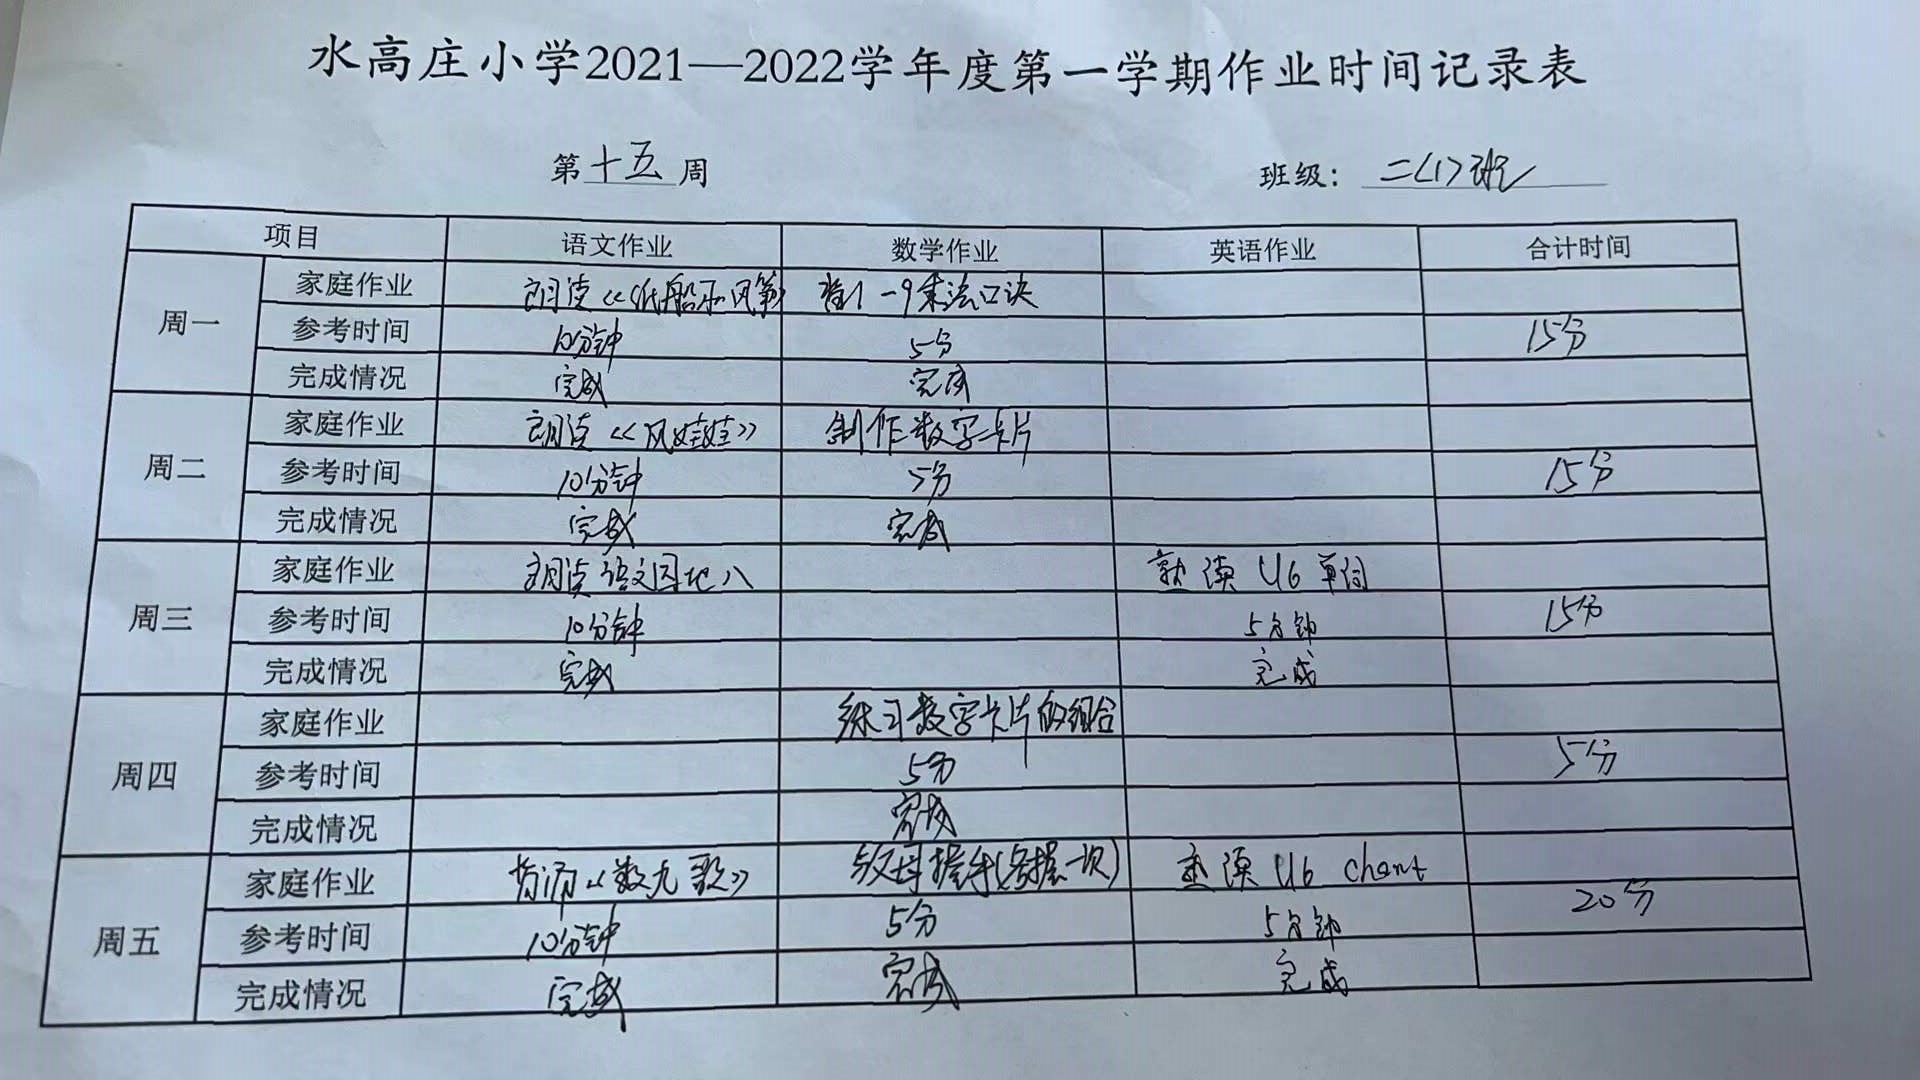 水高庄小学2021—2022学年度第一学期作业时间记录表
第十五周 班级：二(1)班
项目 语文作业 数学作业 英语作业 合计时间
周一 家庭作业 朗读《纸船和风筝》 背1-9乘法口诀
参考时间 10分钟 5分 15分
完成情况 完成 完成
周二 家庭作业 朗读《风娃娃》 制作数字卡片
参考时间 10分钟 5分 15分
完成情况 完成 完成
周三 家庭作业 朗读语文园地八 熟读 U6 单词
参考时间 10分钟 5分钟 15分
完成情况 完成 完成
周四 家庭作业 练习数字卡片的组合
参考时间 5分 5分
完成情况 完成
周五 家庭作业 背诵《数九歌》 与父母握手(各握一次) 熟读 U6 chant
参考时间 10分钟 5分 5分钟 20分
完成情况 完成 完成 完成